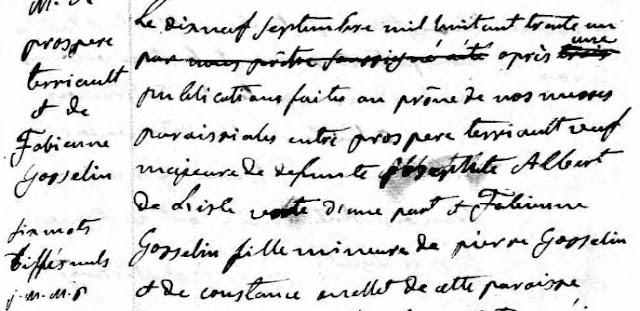 M. de
prospere
terriault
et de
Fabienne
Gosselin
six mots
biffés nuls
j. M. M. p
Le dixneuf septembre mil huit cent trente un
par nous prêtre soussigné a été après trois une
publications faites au prône de nos messes
paroissiales entre prospere terriault veuf
majeure de defunte Albert
de Lisle verte d'une part et Fabienne
Gosselin fille mineure de pierre Gosselin
et de constance ouellet de cette paroisse